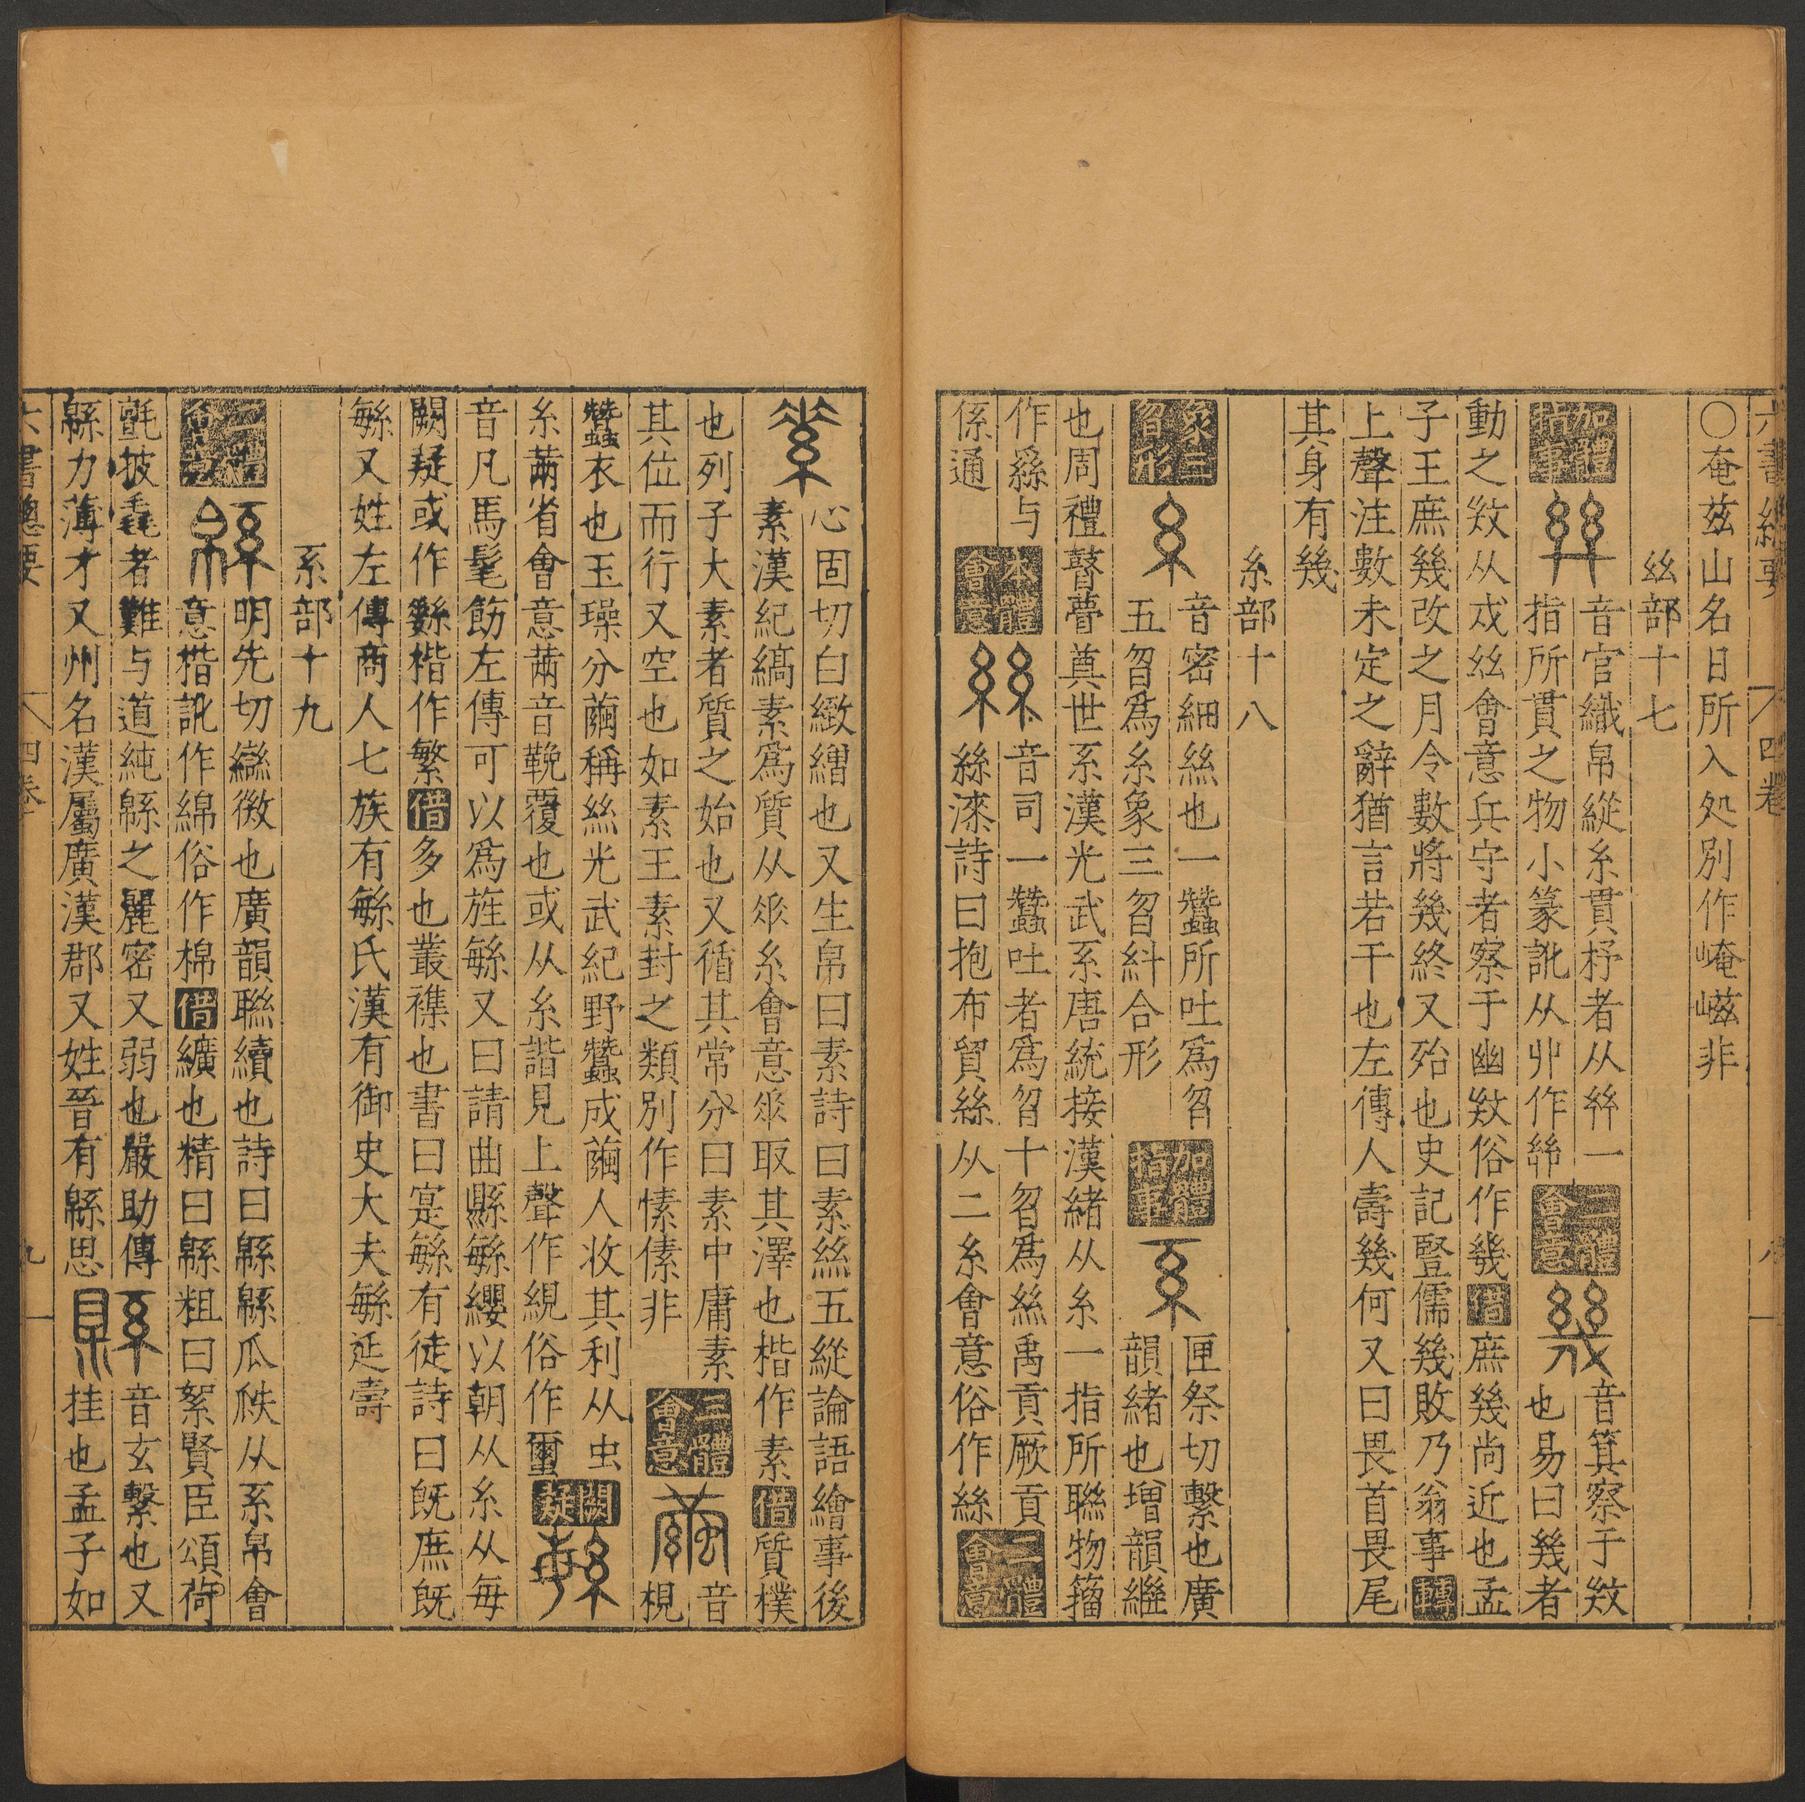 六書總要 四卷 八
〇奄茲山名日所入処別作崦嵫非
𢆶部十七
加體指事 音官織帛縱糸貫杼者从𢆶一
指所貫之物小篆訛从丱作𢇇 二體會意 音箕察于㡬
也易曰幾者
動之㡬从戍𢆶會意兵守者察于幽㡬俗作㡬借庶幾尚近也孟
子王庶幾改之月令數將幾終又殆也史記豎儒幾敗乃翁事轉
上聲注數未定之辭猶言若干也左傳人壽幾何又曰畏首畏尾
其身有幾
糸部十八
象三曶形 音密細絲也一蠶所吐爲曶
五曶爲糸象三曶糾合形 加體指事 匣祭切繫也廣
韻緒也增韻繼
也周禮瞽矇奠世系漢光武系唐統接漢緒从糸一指所聯物籀
作𦃟与
係通 本體會意 音司一蠶吐者爲曶十曶爲絲禹貢厥貢
絲漆詩曰抱布貿絲从二糸會意俗作絲 二體會意
心固切白緻繒也又生帛曰素詩曰素絲五縱論語繪事後
素漢紀縞素爲質从𠂹糸會意𠂹取其澤也楷作素借質樸
也列子大素者質之始也又循其常分曰素中庸素
其位而行又空也如素王素封之類別作愫傃非 三體會意 音
梘
蠶衣也玉璪分繭稱絲光武紀野蠶成繭人收其利从虫
糸芇省會意芇音鞔覆也或从糸諧見上聲作絸俗作壐 闕疑
音凡馬髦飾左傳可以爲旌緐又曰請曲縣緐纓以朝从糸从每
闕疑或作𦃟楷作繁借多也叢襍也書曰寔緐有徒詩曰旣庶旣
緐又姓左傳商人七族有緐氏漢有御史大夫緐延壽
系部十九
二體會意 明先切㜻微也廣韻聯續也詩曰緜緜瓜瓞从系帛會
意楷訛作綿俗作棉借纊也精曰緜粗曰絮賢臣頌荷
氈披毳者難与道純緜之麗密又弱也嚴助傳
緜力薄才又州名漢屬廣漢郡又姓晉有緜思 音玄繫也又
挂也孟子如
六書總要 四卷 九